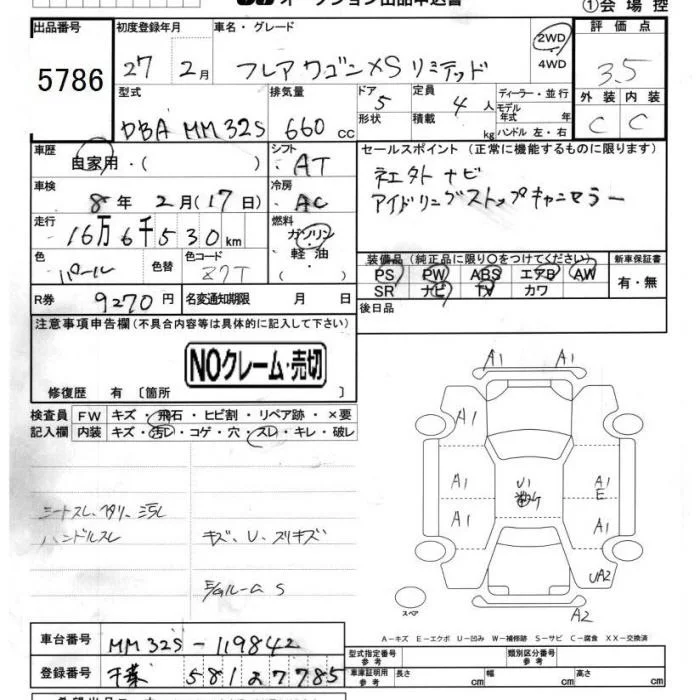 オークション出品申込書
①会場控
出品番号 初度登録年月 車名・グレード 2WD 4WD 評価点
5786 27年 2月 フレアワゴンXSリミテッド 3.5
型式 排気量 ドア 5 定員 4人 ディーラー・並行 外装 内装
DBA MM32S 660cc 形状 積載 kg モデル年式 年 ハンドル 左・右 C C
車歴 シフト セールスポイント (正常に機能するものに限ります)
自家用・( ) AT 社外ナビ
車検 8年 2月(17日) 冷房 AC アイドリングストップキャンセラー
走行 16万6千530km 燃料 ガソリン・軽油・( )
色 パール 色替 色コード Z7T
装備品 (純正品に限り○をつけてください) 新車保証書
PS PW ABS エアB AW 有・無
SR ナビ TV カワ
R券 9270円 名変通知期限 月 日 後日品
注意事項申告欄(不具合内容等は具体的に記入して下さい)
NOクレーム・売切
修復歴 有〔箇所 〕
検査員 FW キズ・飛石・ヒビ割・リペア跡・×要
記入欄 内装 キズ・汚レ・コゲ・穴・スレ・キレ・破レ
A1 A1
A1
A1 U1 A1
E
A1 A1
UA2
A2
シートスレ、ヘタリ、汚レ
ハンドルスレ キズ、U、スリキズ
ルームS
スペア
A−キズ E−エクボ U−凹み W−補修跡 S−サビ C−腐食 XX−交換済
車台番号 MM32S-119842
型式指定番号 参考 類別区分番号 参考
登録番号 千葉 581 2 7785
車庫証明用 参考 長さ cm 幅 cm 高さ cm